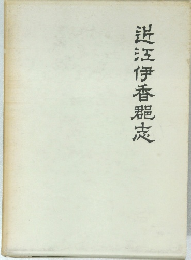 近江伊香郡志